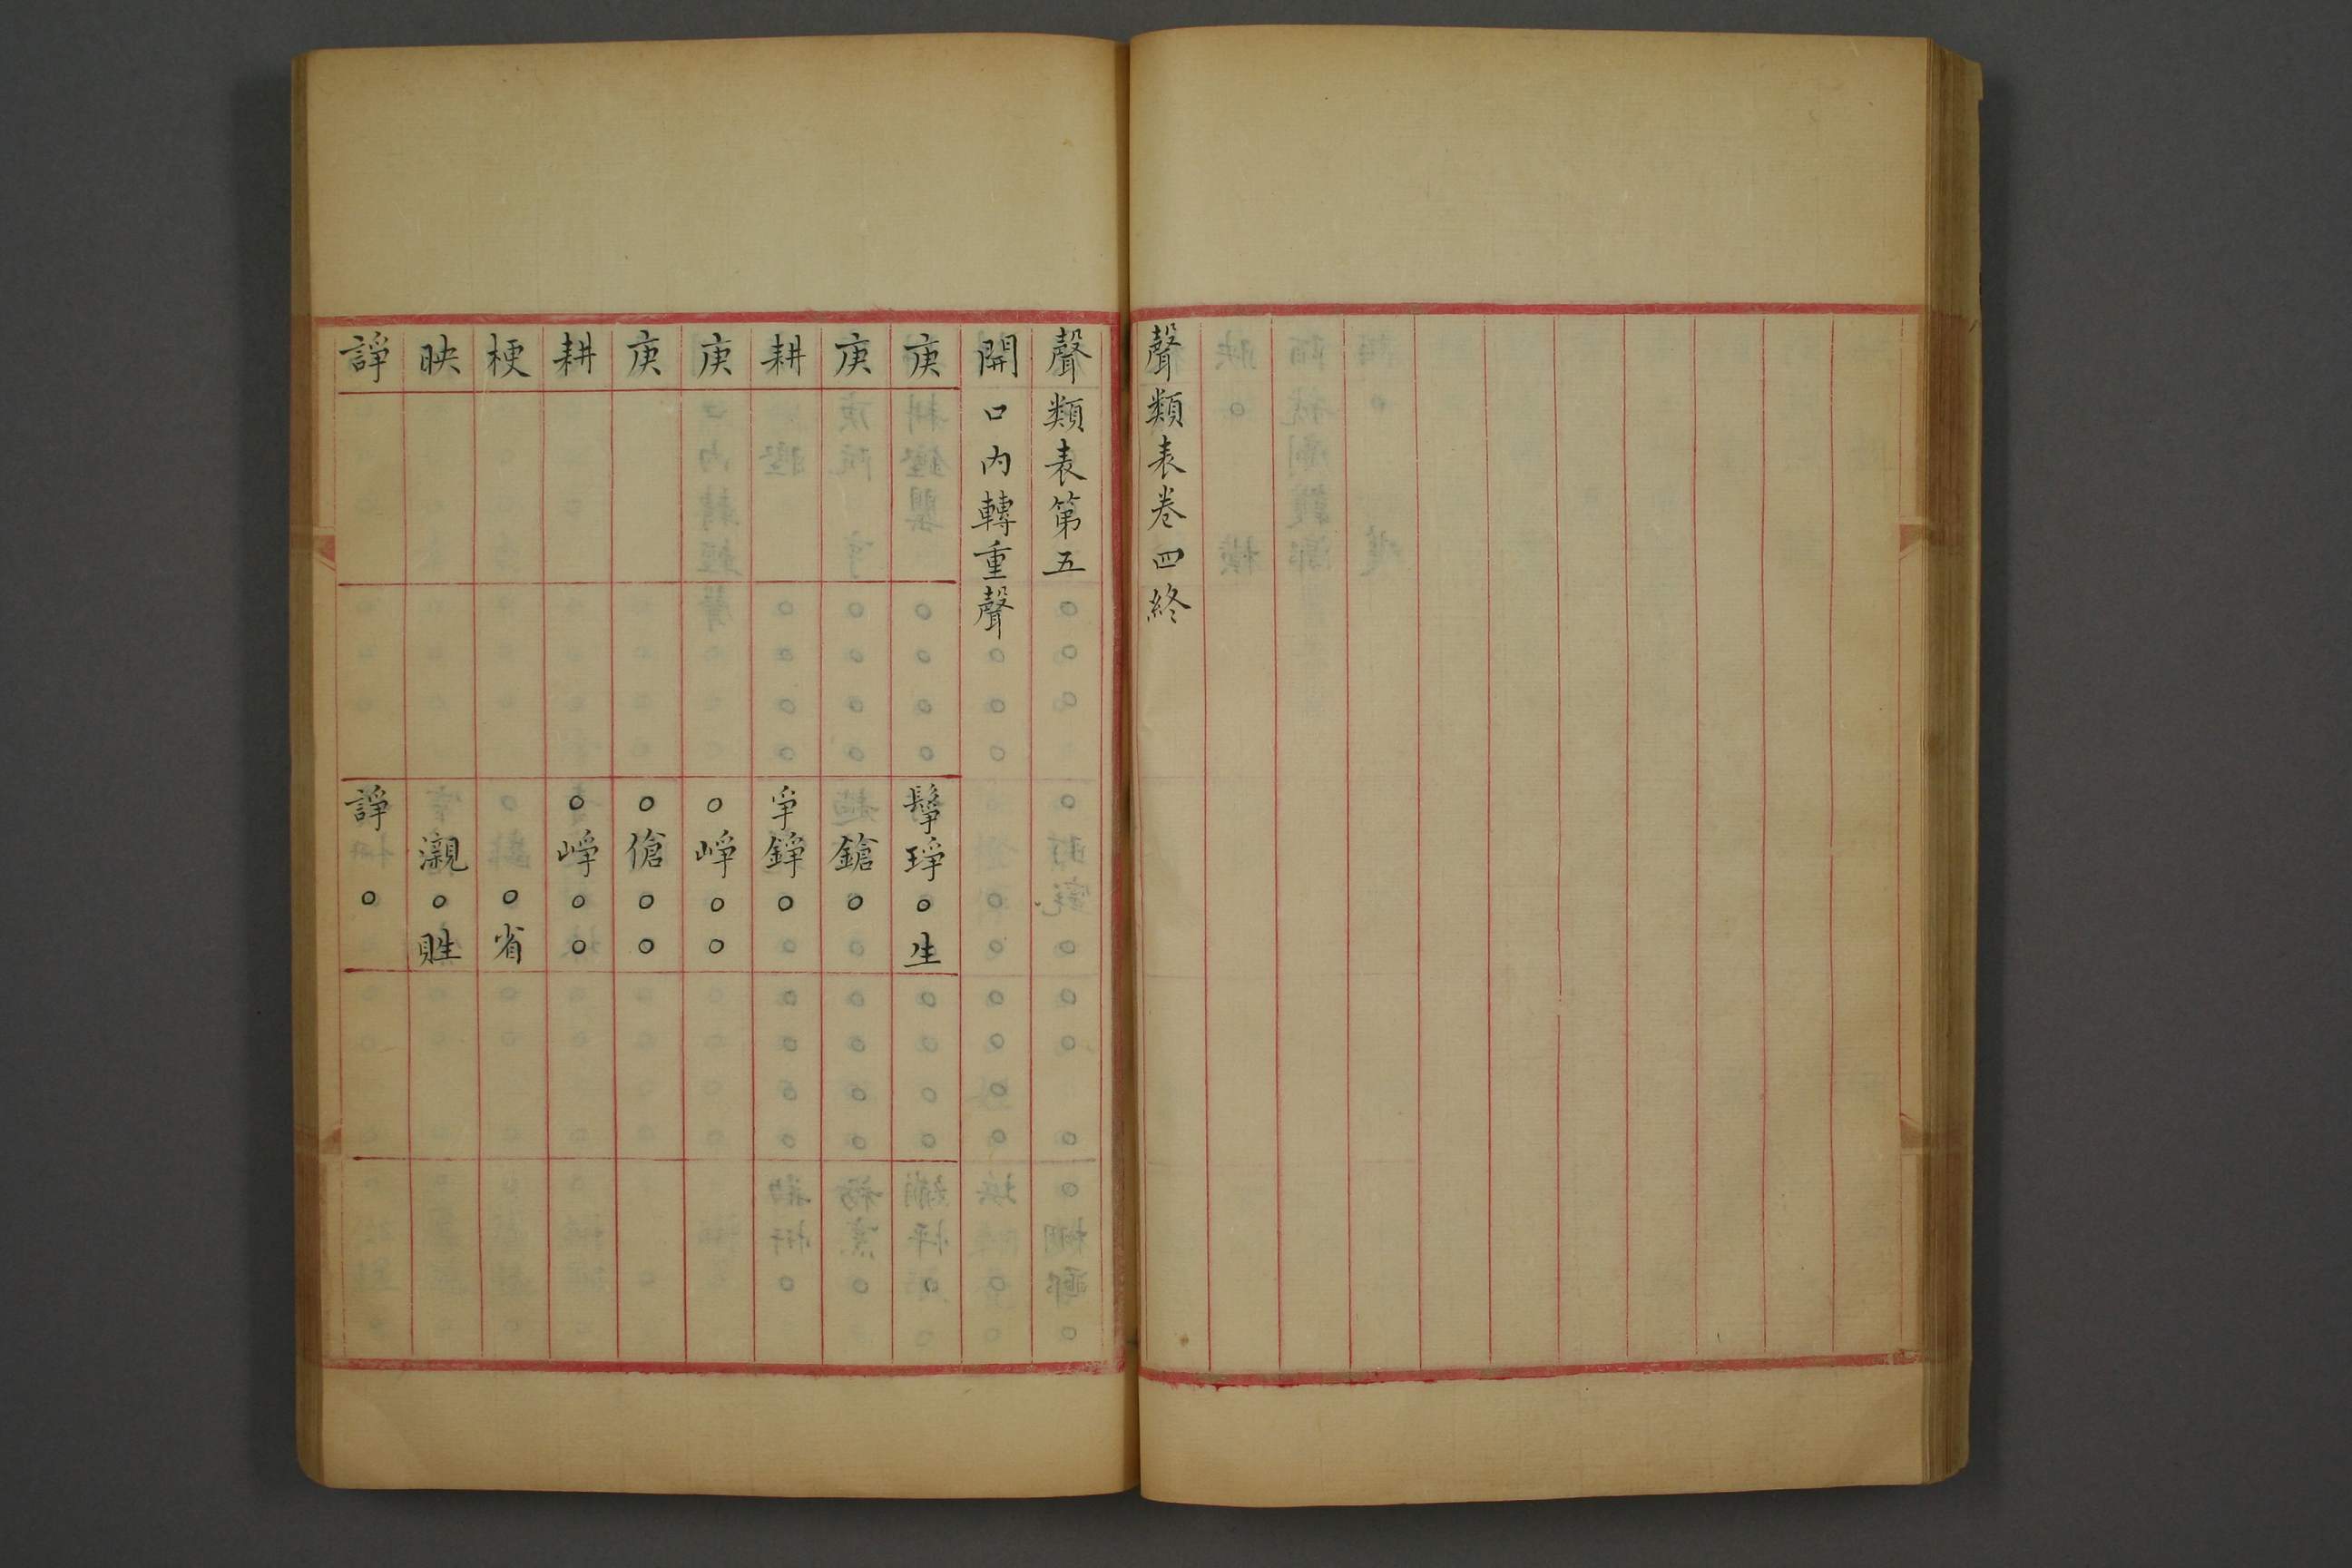 聲類表卷四終
聲類表第五
開口內轉重聲
庚 鬇琤○生
庚 鎗○
耕 爭錚○
庚 ○崢○○
庚 ○傖○○
耕 ○崢○○
梗 ○省
映 瀙○貹
諍 諍○